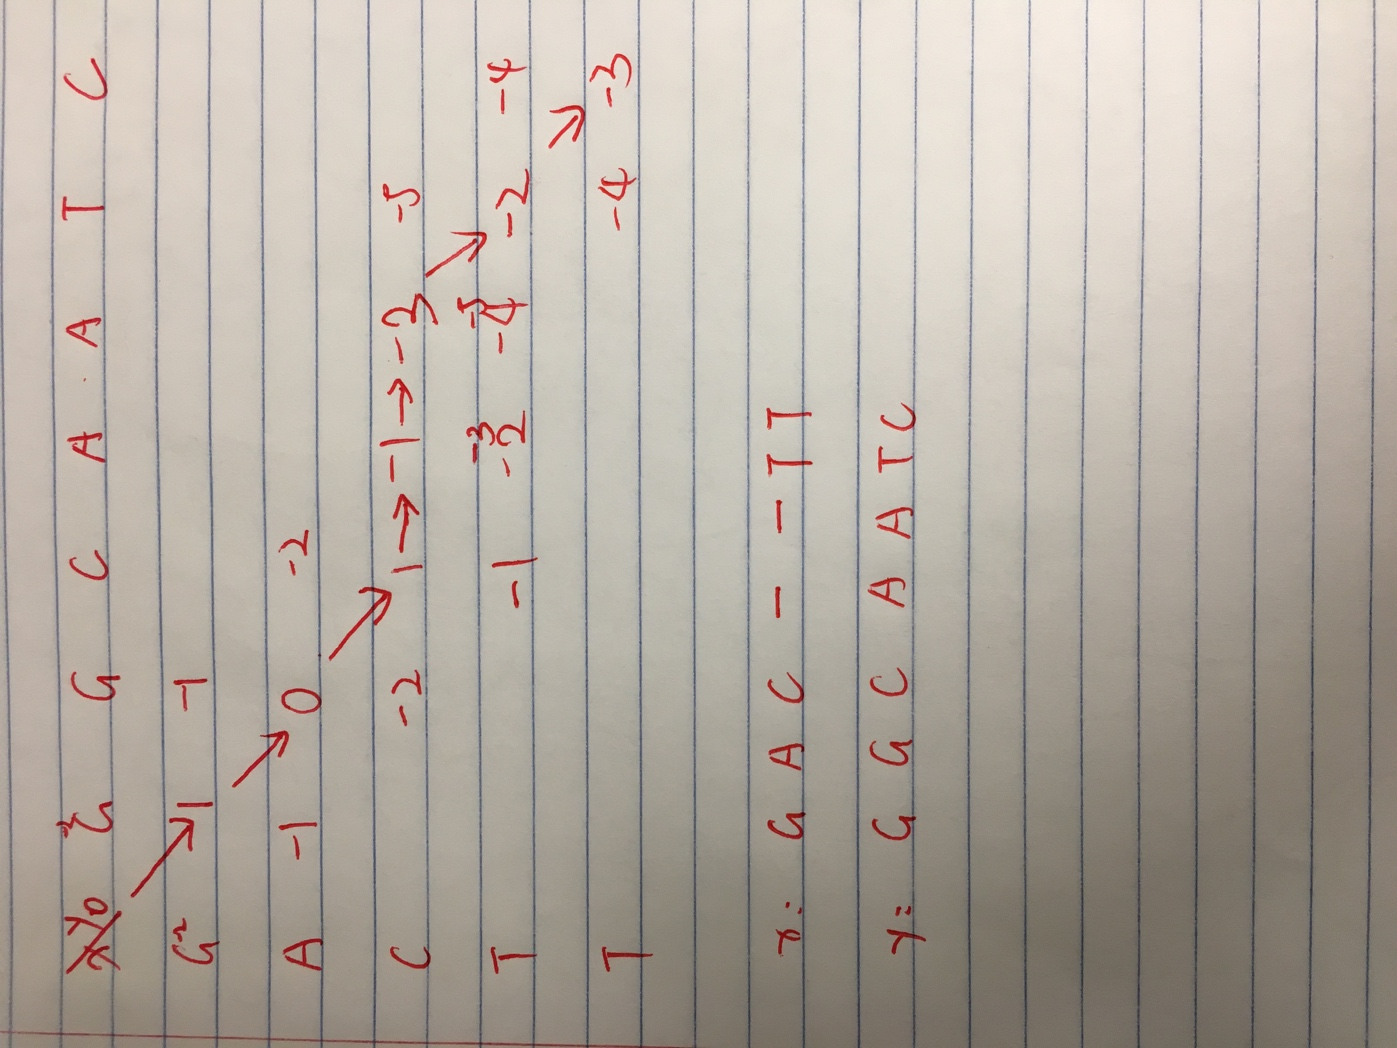 x/y 0 G -2 G C A A T C
G -2 1 -1
A -1 0 -2
C -2 1 → -1 → -3 -5
T -1 -2 -3 -4 -5 -2 -4
T -4 -3
x: G A C - - T T
y: G G C A A T C